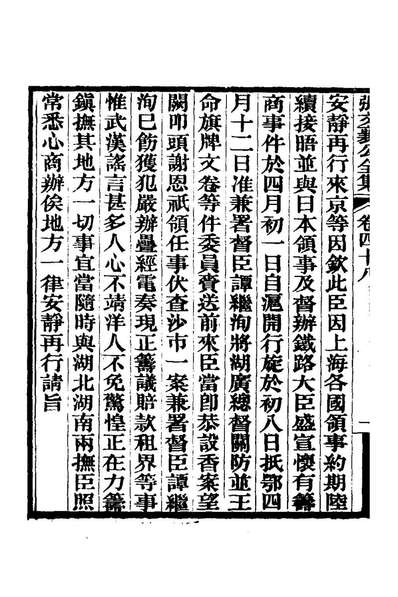 張文襄公全集 卷四十八 一
安靜再行來京等因欽此臣因上海各國領事約期陸
續接晤並與日本領事及督辦鐵路大臣盛宣懷有籌
商事件於四月初一日自滬開行旋於初八日抵鄂四
月十二日准兼署督臣譚繼洵將湖廣總督關防並王
命旗牌文卷等件委員賫送前來臣當卽恭設香案望
闕叩頭謝恩祇領任事伏查沙市一案兼署督臣譚繼
洵巳飭獲犯嚴辦疊經電奏現正籌議賠款租界等事
惟武漢謠言甚多人心不靖洋人不免驚惶正在力籌
鎮撫其地方一切事宜當隨時與湖北湖南兩撫臣照
常悉心商辦俟地方一律安靜再行請旨